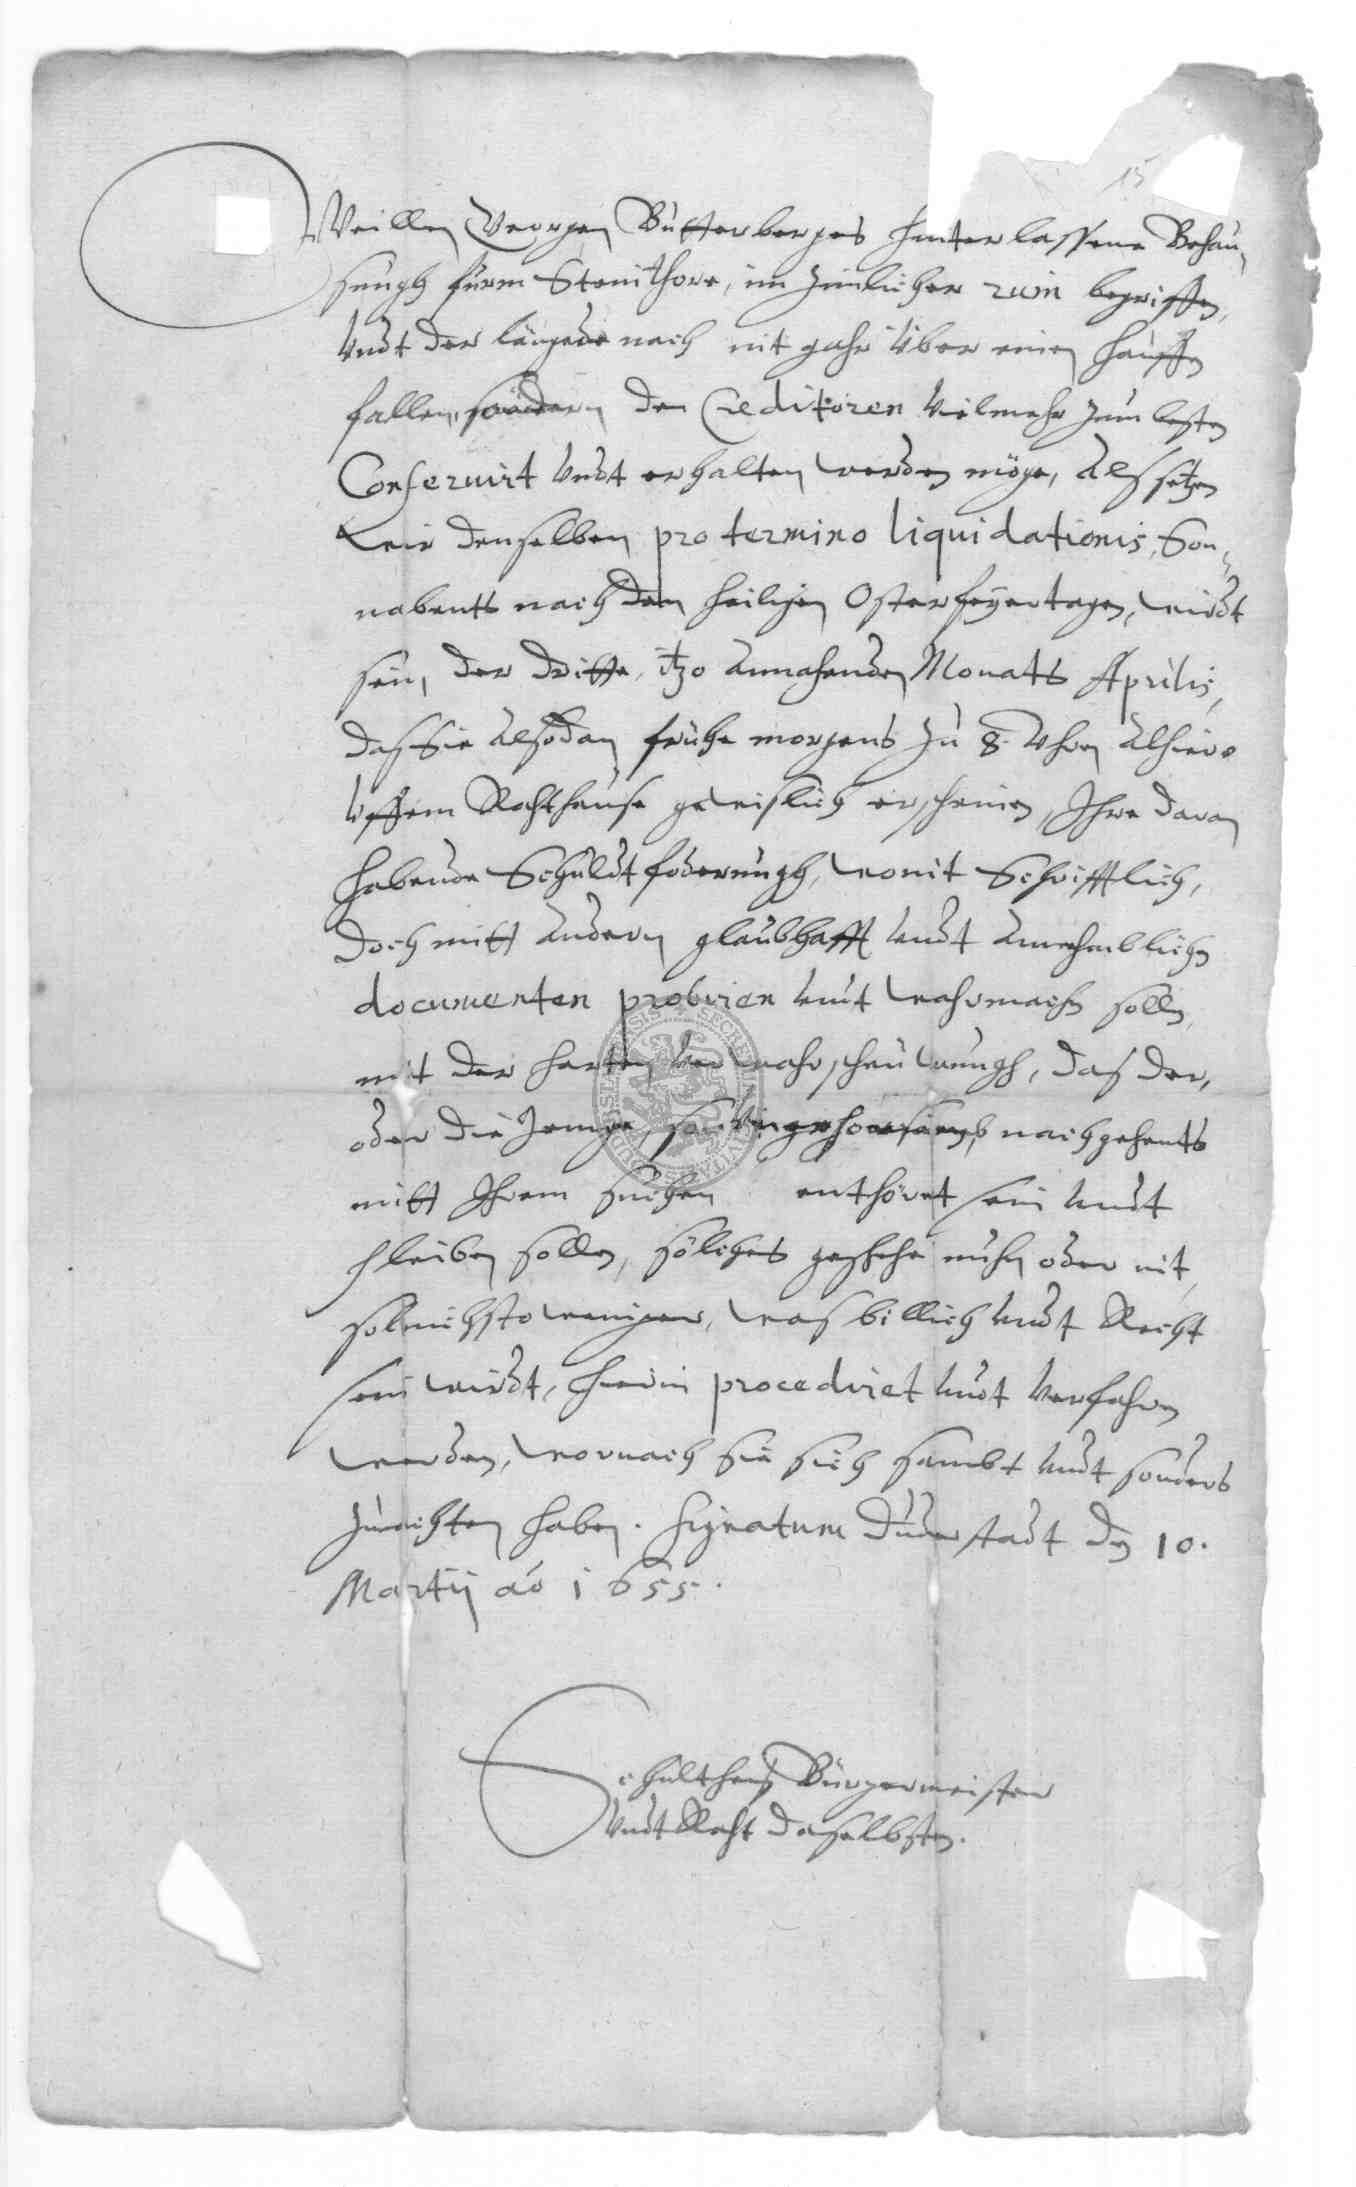 15
Weillen Georgen Butterberges hinterlassene Behau¬
sungh fürm Steinthore, in zimlicher ruin begriffen,
Undt der längede nach nit gahr Uber einen hauffen
fallen, sondern den Creditoren Vielmehr zum besten
Conservirt Undt erhalten werden möge, Als setzen
wir denselben pro termino liquidationis, Son¬
nabents nach den heiligen Osterfeyertagen, wirdt
sein, der dritte, itzo Annahenden Monats Aprilis,
das Sie Alsodan frühe morgens zu 8. Uhren Alhiero
Uffem Rahthause gewislich erscheinen, Ihre daran
habende Schuldtfoderungh, womit Schrifftlich,
doch mitt Andern glaubhafft Undt Annehmblichen
documenten probiren Undt wahrmachen sollen,
mit der harten Verwahrschauwungh, das der,
oder die Jenige, so Ungehorsamb nachgehents
mitt Ihrem suchen enthöret sein Undt
pleiben sollen, solches geschehe nuhn oder nit,
sol nichsto weniger, was billich Undt Recht
sein wirdt, hierin procediret Undt Verfahren
werden, wornach sie sich sambt Undt sonders
zuachten haben. Signatum Duderstadt den 10.
Martij ao 1655.
Schultheis Bürgermeister
Undt Raht daselbsten.